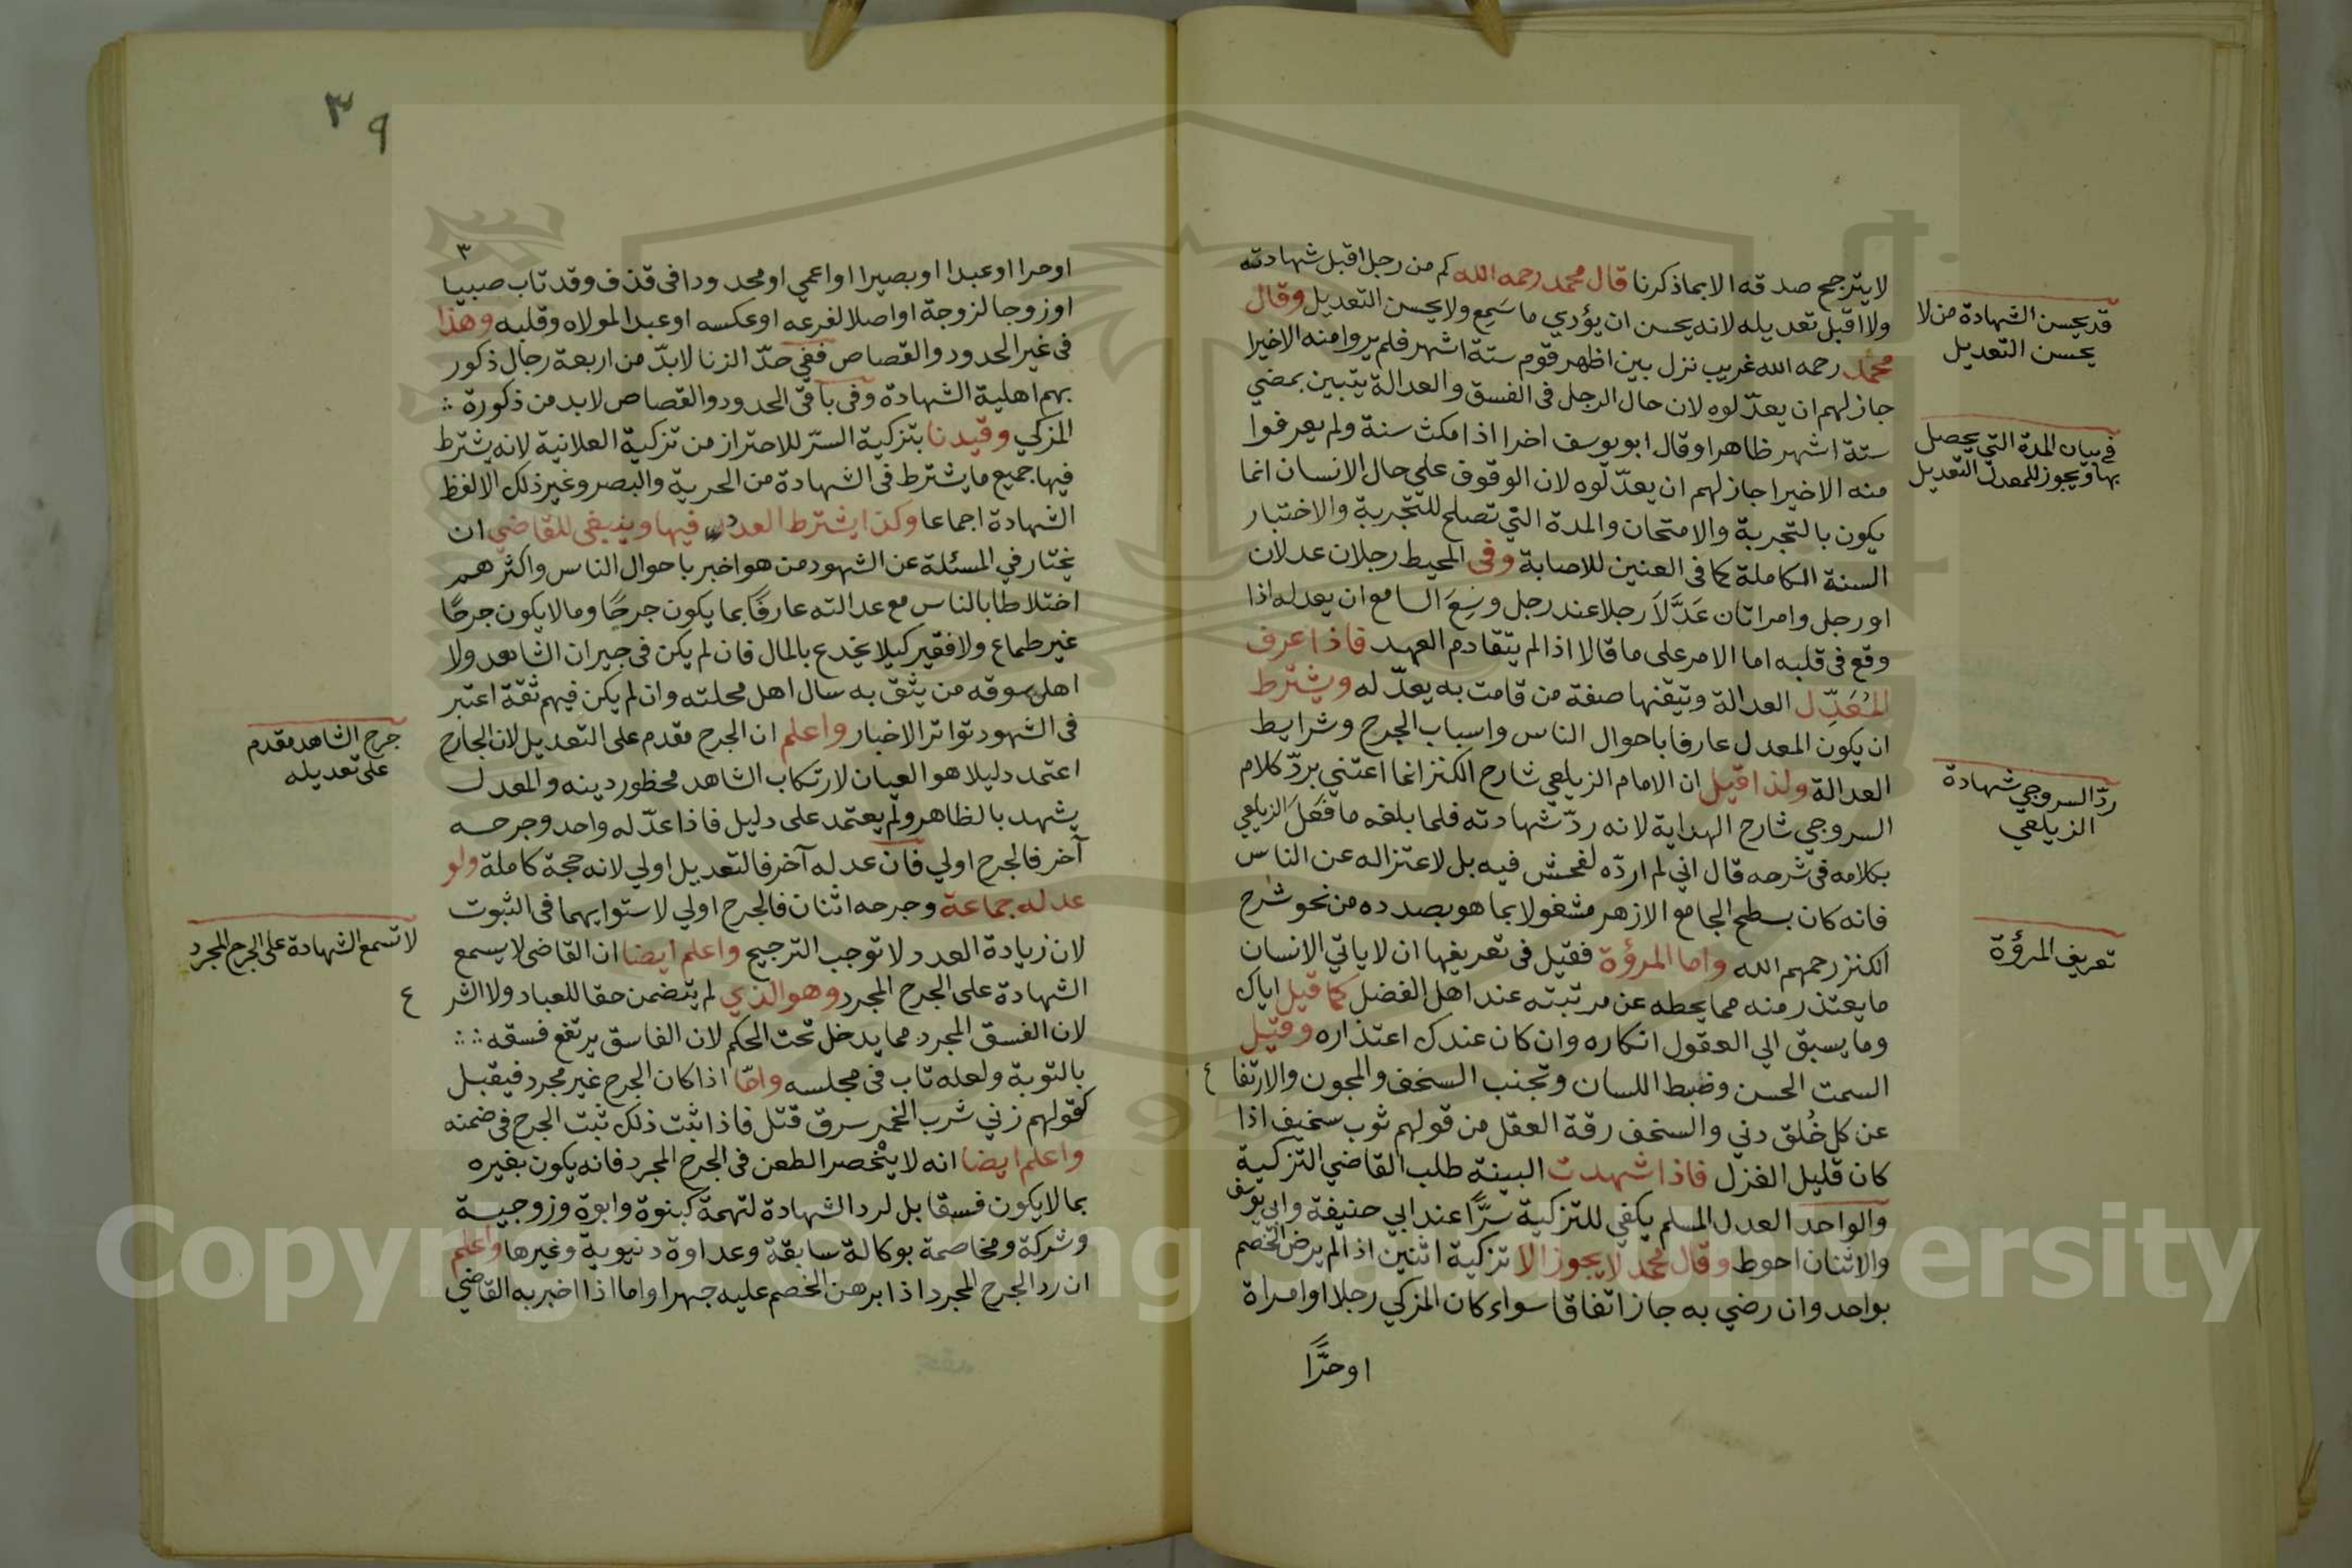 لا يترجح صدقه الا بما ذكرنا قال محمد رحمه الله كم من رجل اقبل شهادته
ولا اقبل تعديله لانه يحسن ان يؤدي ما سَمِع ولا يحسن التعديل وقال
محمد رحمه الله غريب نزل بين اظهر قوم ستة اشهر فلم يروا منه الا خيرا
جاز لهم ان يعدّلوه لان حال الرجل فى الفسق والعدالة يتبين بمضي
ستة اشهر ظاهرا وقال ابو يوسف اخرا اذا مكث سنة ولم يعرفوا
منه الا خيرا جاز لهم ان يعدّلوه لان الوقوف علي حال الانسان انما
يكون بالتجربة والامتحان والمدة التي تصلح للتجربة والاختبار
السنة الكاملة كما فى العنين للاصابة وفى المحيط رجلان عدلان
او رجل وامراتان عَدَّلَا رجلا عند رجل وسِعَ السامع ان يعدله اذا
وقع فى قلبه اما الامر على ما قالا اذا لم يتقادم العهد فاذا عرف
المُعَدِّل العدالة وتيقنها صفة من قامت به يعدّله ويشترط
ان يكون المعدل عارفا باحوال الناس واسباب الجرح وشرايط
العدالة ولذا قيل ان الامام الزيلعي شارح الكنز انما اعتني بردّ كلام
السروجي شارح الهداية لانه ردّ شهادته فلما بلغه ما فَعَلَ الزيلعي
بكلامه فى شرحه قال اني لم اردّه لفحش فيه بل لاعتزاله عن الناس
فانه كان بسطح الجامع الازهر مشغولا بما هو بصدده من نحو شرح
الكنز رحمهم الله واما المرؤة فقيل فى تعريفها ان لا ياتي الانسان
ما يعتذر منه مما يحطه عن مرتبته عند اهل الفضل كما قيل اياك
وما يسبق الي العقول انكاره وان كان عندك اعتذاره وقيل
السمت الحسن وضبط اللسان وتجنب السخف والمجون والارتفا ع
عن كل خُلق دني والسخف رقة العقل من قولهم ثوب سخيف اذا
كان قليل الغزل فاذا شهدت البينة طلب القاضي التزكية
والواحد العدل المسلم يكفي للتزكية سرًّا عند ابي حنيفة وابي يوسف
والاثنان احوط وقال محمد لا يجوز الا تزكية اثنين اذا لم يرض الخصم
بواحد وان رضي به جاز اتفاقا سواء كان المزكي رجلا او امراة
او حرًّا
قد يحسن الشهادة من لا
يحسن التعديل
في بيان المدة التي يحصل
بها ويجوز للمعدل التعديل
ردّ السروجي شهادة
الزيلعي
تعريف المرؤة
٣٩
٣
او حرا او عبدا او بصيرا او اعمي او محدودا فى قذف وقد تاب صبيا
او زوجا لزوجة او اصلا لفرعه او عكسه او عبدا لمولاه وقلبه وهذا
فى غير الحدود والقصاص ففي حدّ الزنا لا بدّ من اربعة رجال ذكور
بهم اهلية الشهادة وفى باقى الحدود والقصاص لا بد من ذكورة
المزكي وقيدنا بتزكية السرّ للاحتراز من تزكية العلانية لانه يشترط
فيها جميع ما يشترط فى الشهادة من الحرية والبصر وغير ذلك الا لفظ
الشهادة اجماعا وكذا يشترط العدد فيها وينبغى للقاضي ان
يختار في المسئلة عن الشهود من هو اخبر باحوال الناس واكثرهم
اختلاطا بالناس مع عدالته عارفًا بما يكون جرحًا وما لا يكون جرحًا
غير طماع ولا فقير كيلا يخدع بالمال فان لم يكن فى جيران الشاهد ولا
اهل سوقه من يثق به سال اهل محلته وان لم يكن فيهم ثقة اعتبر
فى الشهود تواتر الاخبار واعلم ان الجرح مقدم على التعديل لان الجارح
اعتمد دليلا هو العيان لارتكاب الشاهد محظور دينه والمعدل
يشهد بالظاهر ولم يعتمد على دليل فاذا عدّله واحد وجرحه
آخر فالجرح اولي فان عدله آخر فالتعديل اولي لانه حجة كاملة ولو
عدله جماعة وجرحه اثنان فالجرح اولي لاستوايهما فى الثبوت
لان زيادة العدد لا توجب الترجيح واعلم ايضا ان القاضى لا يسمع
الشهادة على الجرح المجرد وهو الذي لم يتضمن حقا للعباد ولا الشر ع
لان الفسق المجرد مما يدخل تحت الحكم لان الفاسق يرتفع فسقه
بالتوبة ولعله تاب فى مجلسه وامّا اذا كان الجرح غير مجرد فيقبل
كقولهم زني شرب الخمر سرق قتل فاذا ثبت ذلك ثبت الجرح فى ضمنه
واعلم ايضا انه لا ينحصر الطعن فى الجرح المجرد فانه يكون بغيره
بما لا يكون فسقا بل لرد الشهادة لتهمة كبنوة وابوة وزوجية
وشركة ومخاصمة بوكالة سابقة وعداوة دنيوية وغيرها واعلم
ان رد الجرح المجرد اذا برهن الخصم عليه جهرا واما اذا اخبر به القاضي
جرح الشاهد مقدم
على تعديله
لا تسمع الشهادة على الجرح المجرد
Copyright © King Saud University